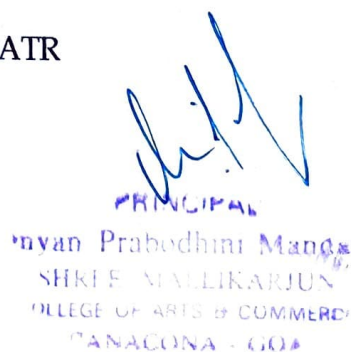 ATR
PRINCIPAL
nyan Prabodhini Manda
SHREE MALLIKARJUN
OLLEGE OF ARTS & COMMERC
CANACONA - GOA